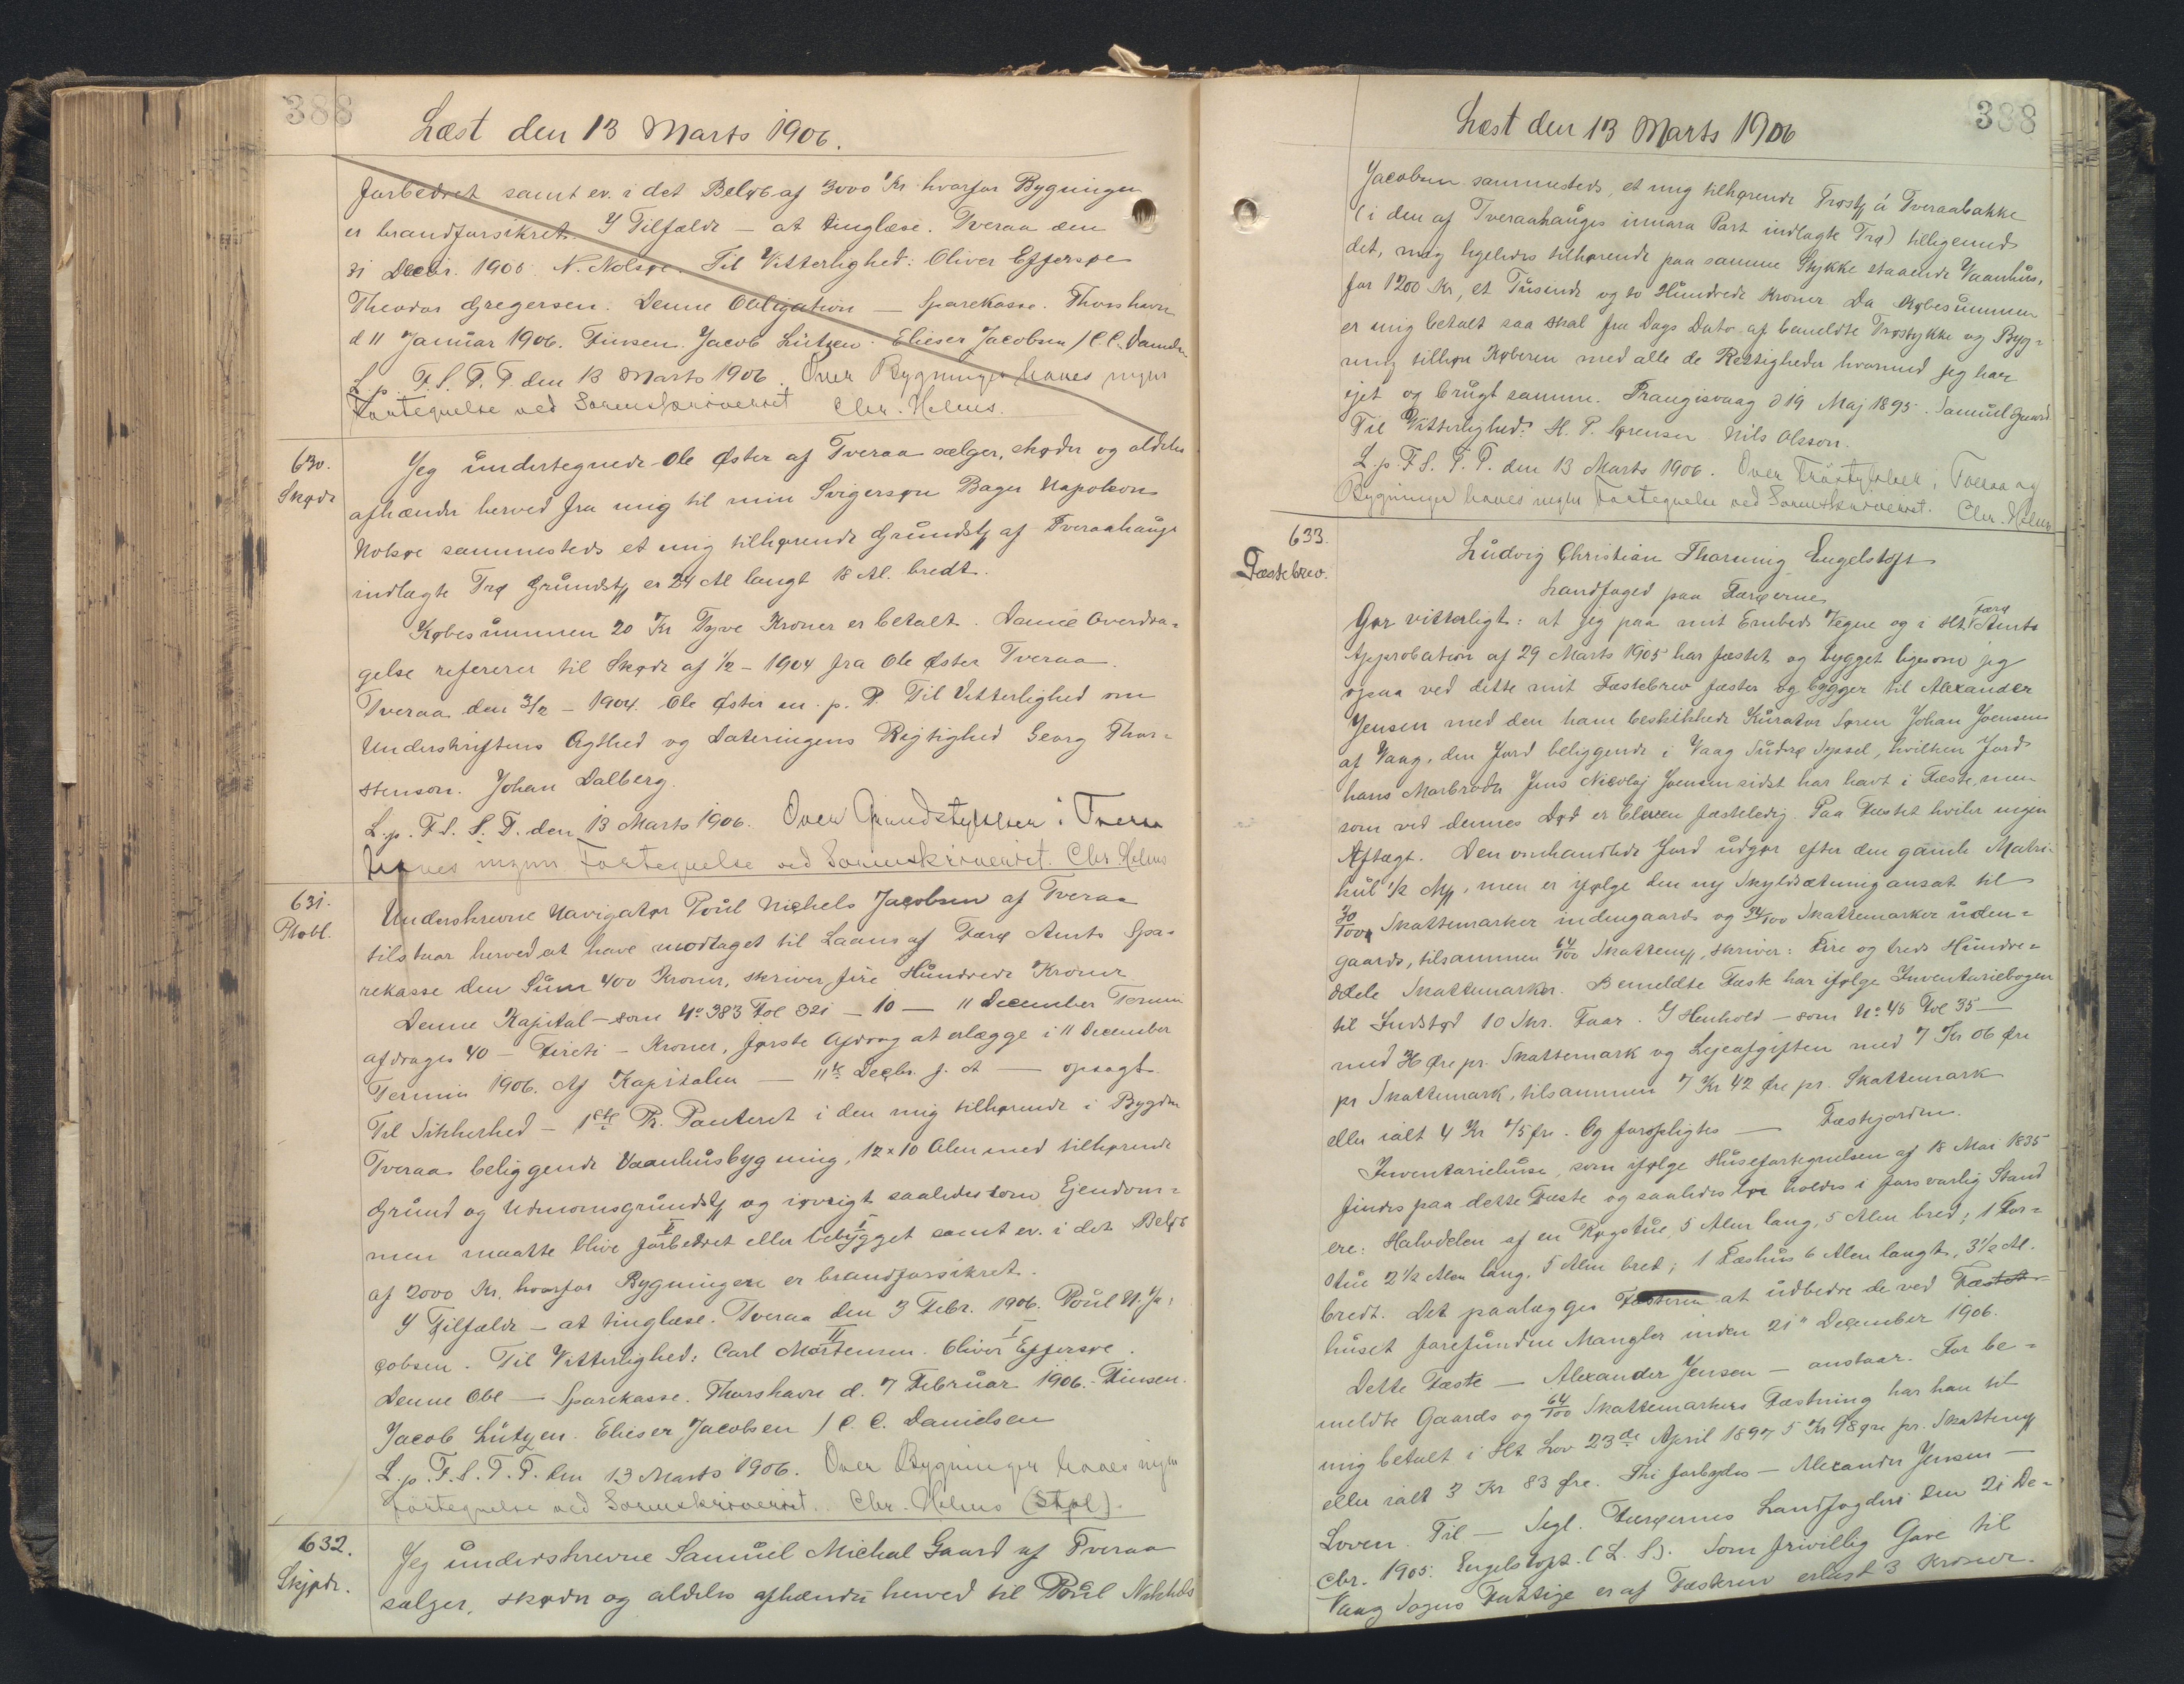 388
Læst den 13 Marts 1906.
forbedret samt ev. i det Beløb af 3000 Kr hvorfor Bygningen
er brandforsikret. I Tilfælde — at tinglæse. Tveraa den
31 Decbr. 1905. N. Nolsøe. Til Vitterlighed: Oliver Effersøe
Theodor Gregersen. Denne Obligation — Sparekasse. Thorshavn
d 11 Januar 1906. Finsen. Jacob Lützen. Elieser Jacobsen / C.C. Daniels.
L. p. F. S. T. P. den 13 Marts 1906. Over Bygninger haves ingen
Fortegnelse ved Sorenskriveriet Chr. Helms.
630.
Skøde
Jeg undertegnede Ole Øster af Tveraa sælger, skøder og aldeles
afhænder herved fra mig til min Svigersøn Bager Napoleon
Nolsøe sammesteds et mig tilhørende Grundstk af Tveraahauge
indlagte Trø Grundstk er 24 Al langt 18 Al. bredt.
Købesummen 20 Kr Tyve Kroner er betalt. Denne Overdra-
gelse refererer til Skøde af 1/2 - 1904 fra Ole Øster Tveraa.
Tveraa den 3/2 - 1904. Ole Øster m. p. P. Til Vitterlighed om
Underskriftens Ægthed og Dateringens Rigtighed Georg Thor-
stenson. Johan Dalberg.
L. p. F. S. S. T. den 13 Marts 1906. Over Grundstykker i Tveraa
haves ingen Fortegnelse ved Sorenskriveriet. Chr. Helms
631.
Ptobl.
Underskrevne Navigatør Poul Nichels Jacobsen af Tveraa
tilstaar herved at have modtaget til Laans af Færø Amts Spa-
rekasse den Sum 400 Kroner, skriver fire Hundrede Kroner
Denne Kapital — som No 383 Fol 321 — 10 — 11 December Termin
afdrages 40 — Fireti — Kroner, første Afdrag at erlægge i 11 December
Termin 1906. Af Kapitalen — 11te Decbr. f. A — opsagt.
Til Sikkerhed — 1ste Pr. Panteret i den mig tilhørende i Bygden
Tveraa beliggende Vaanhusbygning, 12 x 10 Alen med tilhørende
Grund og Udmomsgrundstk og iøvrigt saaledes som Ejendom-
men maatte blive forbedret eller bebygget samt ev. i det Beløb
af 2000 Kr. hvorfor Bygningen er brandforsikret.
I Tilfælde — at tinglæse. Tveraa den 3 Febr. 1906. Poul N. Ja-
cobsen. Til Vitterlighed: Carl Mortensen. Oliver Effersøe.
Denne Obl — Sparekasse. Thorshavn d. 7 Februar 1906. Finsen.
Jacob Lützen. Elieser Jacobsen / C. C. Danielsen
L. p. F. S. T. P. den 13 Marts 1906. Over Bygninger haves ingen
Fortegnelse ved Sorenskriveriet. Chr. Helms (Stpl).
632.
Skjøde.
Jeg underskrevne Samuel Michal Gaard af Tveraa
sælger, skøder og aldeles afhænder herved til Poul Nichels
388
Læst den 13 Marts 1906
Jacobsen sammesteds, et mig tilhørende Trøstk á Tveraabakke
(i den af Tveraahauges innara Part indlagte Trø) tilligemed
det, mig ligeledes tilhørende paa samme Stykke staaende Vaanhus,
for 1200 Kr, et Tusinde og to Hundrede Kroner. Da Købesummen
er mig betalt saa skal fra Dags Dato af bemeldte Trøstykke og Byg-
ning tilhøre Køberen med alle de Rettigheder hvormed jeg har
ejet og brugt samme. Trangisvaag d 19 Maj 1895. Samuel Gaard.
Til Vitterlighed: H. P. Sørensen Nils Olsson.
L. p. F. S. T. P. den 13 Marts 1906. Over Trøstykker i Tveraa og
Bygninger haves ingen Fortegnelse ved Sorenskriveriet. Chr. Helms
633.
Fæstebrev.
Ludvig Christian Tharning Engelstoft
Landfoged paa Færøerne
Gør vitterligt: at jeg paa mit Embeds Vegne og i Hlt. Færø Amts
Approbation af 29 Marts 1905 har fæstet og bygget ligesom jeg
ogsaa ved dette mit Fæstebrev fæster og bygger til Alexander
Jensen med den ham beskikkede Kurator Søren Johan Joensen
af Vaag, den Jord beliggende i Vaag Suderø Syssel, hvilken Jord
hans Morbroder Jens Nicolaj Joensen sidst har havt i Fæste, men
som ved dennes Død er bleven fæsteledig. Paa Fæstet hviler ingen
Aftægt. Den omhandlede Jord udgør efter den gamle Matri-
kul 1/2 Mk, men er ifølge den ny Skyldsætning ansat til
30/100 Skattemarker indengaards og 34/100 Skattemarker uden-
gaards, tilsammen 64/100 Skattemk, skriver: Fire og treds Hundre-
dele Skattemarker. Bemeldte Fæste har ifølge Inventariebogen
til Indstød 10 Skr. Faar. I Henhold — som No 45 Fol 35 —
med 36 Øre pr. Skattemark og Lejeafgiften med 7 Kr 06 Øre
pr Skattemark, tilsammen 7 Kr 42 Øre pr. Skattemark
eller ialt 4 Kr 75 Øre. Og forpligtes — Fæstejorden.
Inventariehuse, som ifølge Husefortegnelsen af 18 Mai 1835
findes paa dette Fæste og saaledes bør holdes i forsvarlig Stand
ere: Halvdelen af en Røgstue, 5 Alen lang, 5 Alen bred; 1 For-
stue 2 1/2 Alen lang, 5 Alen bred; 1 Fæhus 6 Alen langt, 3 1/2 Al.
bredt. Det paalægges Fæsteren at udbedre de ved Fæstet
huset forefundne Mangler inden 21" December 1906.
Dette Fæste — Alexander Jensen — anstaar. For be-
meldte Gaards og 64/100 Skattemarkers Fæstning har han til
mig betalt i Hlt Lov 23de April 1897 5 Kr 98 Øre pr. Skattemk
eller ialt 3 Kr 83 Øre. Thi forbydes — Alexander Jensen —
Loven. Til — Segl. Færøernes Landfogderi den 21 De-
cbr. 1905. Engelstoft. (L. S). Som frivillig Gave til
Vaag Sogns Fattige er af Fæsteren erlagt 3 Kroner.